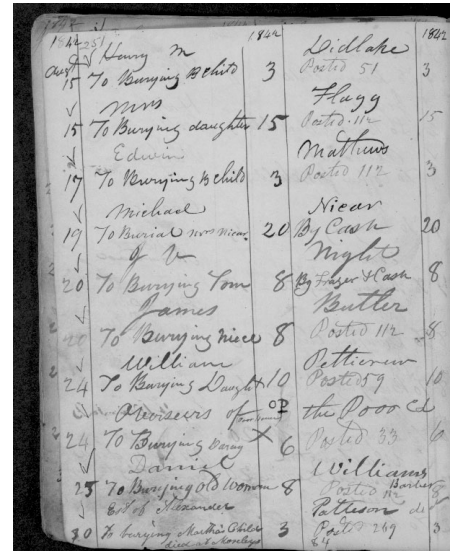 1842 1842 1842
Henry M Didlake
Augt 15 To Burying B child 3 Posted 51 3
Mrs Flagg
15 To Burying daughter 15 Posted 112 15
Edwin Matthews
17 To Burying B child 3 Posted 112 3
Michael Nicar
19 To Burial Mrs Nicar 20 By Cash 20
J V Night
20 To Burying Tom 8 By Frazer & Cash 8
James Butler
To Burying niece 8 Posted 112 8
William Petticrew
24 To Burying Daught 10 Posted 59 10
of the Poor Cd
24 To Burying X 6 Posted 33 6
Daniel Williams
25 To Burying old Woman 8 Posted 112 Barber 8
Est of Alexander Patteson de
30 To burying Martha's Child 3 Posted 269 3
died at Mosleys 84